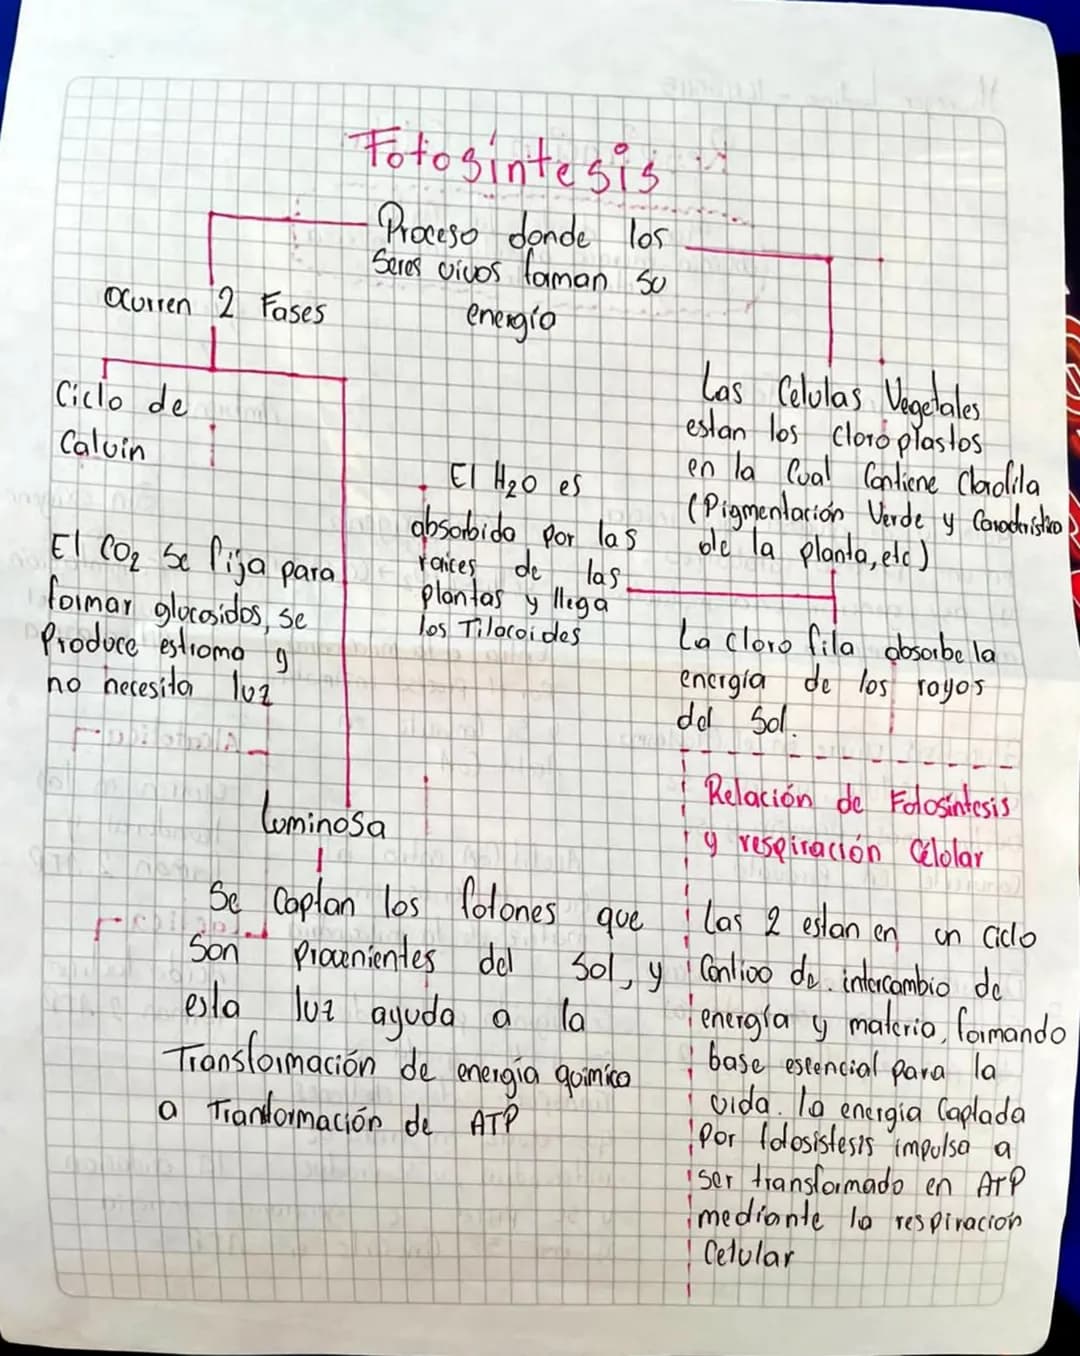 Fotosíntesis
Proceso donde los
Seres vivos forman su
energía
Ocurren 2 Fases
Ciclo de
Calvin
El CO2 Se fija para
formar glucosidos, se
Produce estroma y
no necesita luz
Luminosa
Se Captan los fotones que
Son Provenientes del Sol, y
esta luz ayuda a la
Transformación de energía química
a Tranformación de ATP
El H2O es
absorbido por las
raices de las
plantas y llega
los Tilacoides
Las Celulas Vegetales
estan los cloroplastos
en la Cual Contiene Clorofila
(Pigmentación Verde y Caracteristico
de la planta, etc)
La clorofila absorbe la
energía de los rayos
del Sol.
Relación de Fotosíntesis
y respiración Célolar
Las 2 estan en un ciclo
Contioo de intercambio de
energía y materia, formando
base escencial para la
vida. la energía Captada
Por fotosistesis impulsa a
ser transformado en ATP
mediante la respiración
Celular